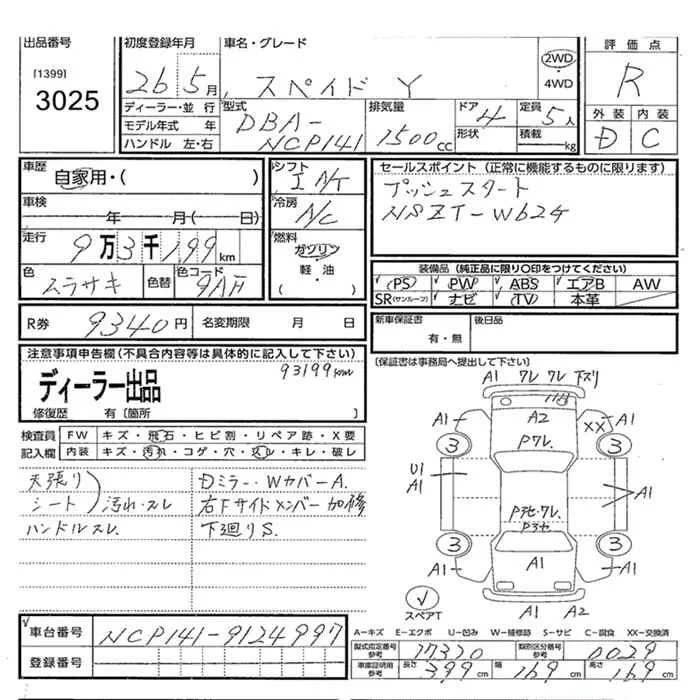 出品番号
[1399]
3025
初度登録年月
26 5月
車名・グレード
スペイド Y
2WD
・
4WD
評価点
R
外装 内装
D C
ディーラー・並行
モデル年式 年
ハンドル 左・右
型式
DBA-
NCP141
排気量
1500cc
ドア 4
形状
定員 5人
積載 kg
車歴
自家用・( )
車検
年 月( 日)
走行
9万3千199km
色
ムラサキ
色替
色コード
9AF
シフト
冷房
A/C
燃料
ガソリン
・
軽・油
( )
セールスポイント(正常に機能するものに限ります)
プッシュスタート
NSZT-W62G
装備品(純正品に限り○印をつけてください)
PS PW ABS エアB AW
SR(サンルーフ) ナビ TV 本革
新車保証書
有・無
後日品
(保証書は事務局へ提出して下さい)
R券 9340円 名変期限 月 日
注意事項申告欄(不具合内容等は具体的に記入して下さい)
93199km
ディーラー出品
修復歴 有〔箇所 〕
検査員
記入欄
FW キズ・飛石・ヒビ割・リペア跡・X要
内装 キズ・汚れ・コゲ・穴・スレ・キレ・破レ
天張り
シート
汚れ・スレ
ハンドルスレ
Dミラー・WカバーA.
右Fサイドメンバー加修
下廻りS.
A1 ワレ ワレ 下ズリ
A1 A2 XX A1
Pワレ
3 3
U1
A1
A1
Pヨセ・ワレ
Pヨセ
3 3
A1 A1 A1
スペアT
A1 A2
車台番号 NCP141-9124997
登録番号
A-キズ E-エクボ U-凹み W-補修跡 S-サビ C-腐食 XX-交換済
型式指定番号
参考
17320
類別区分番号
参考
0029
車庫証明用
参考
長さ 399cm 幅 169cm 高さ 169cm